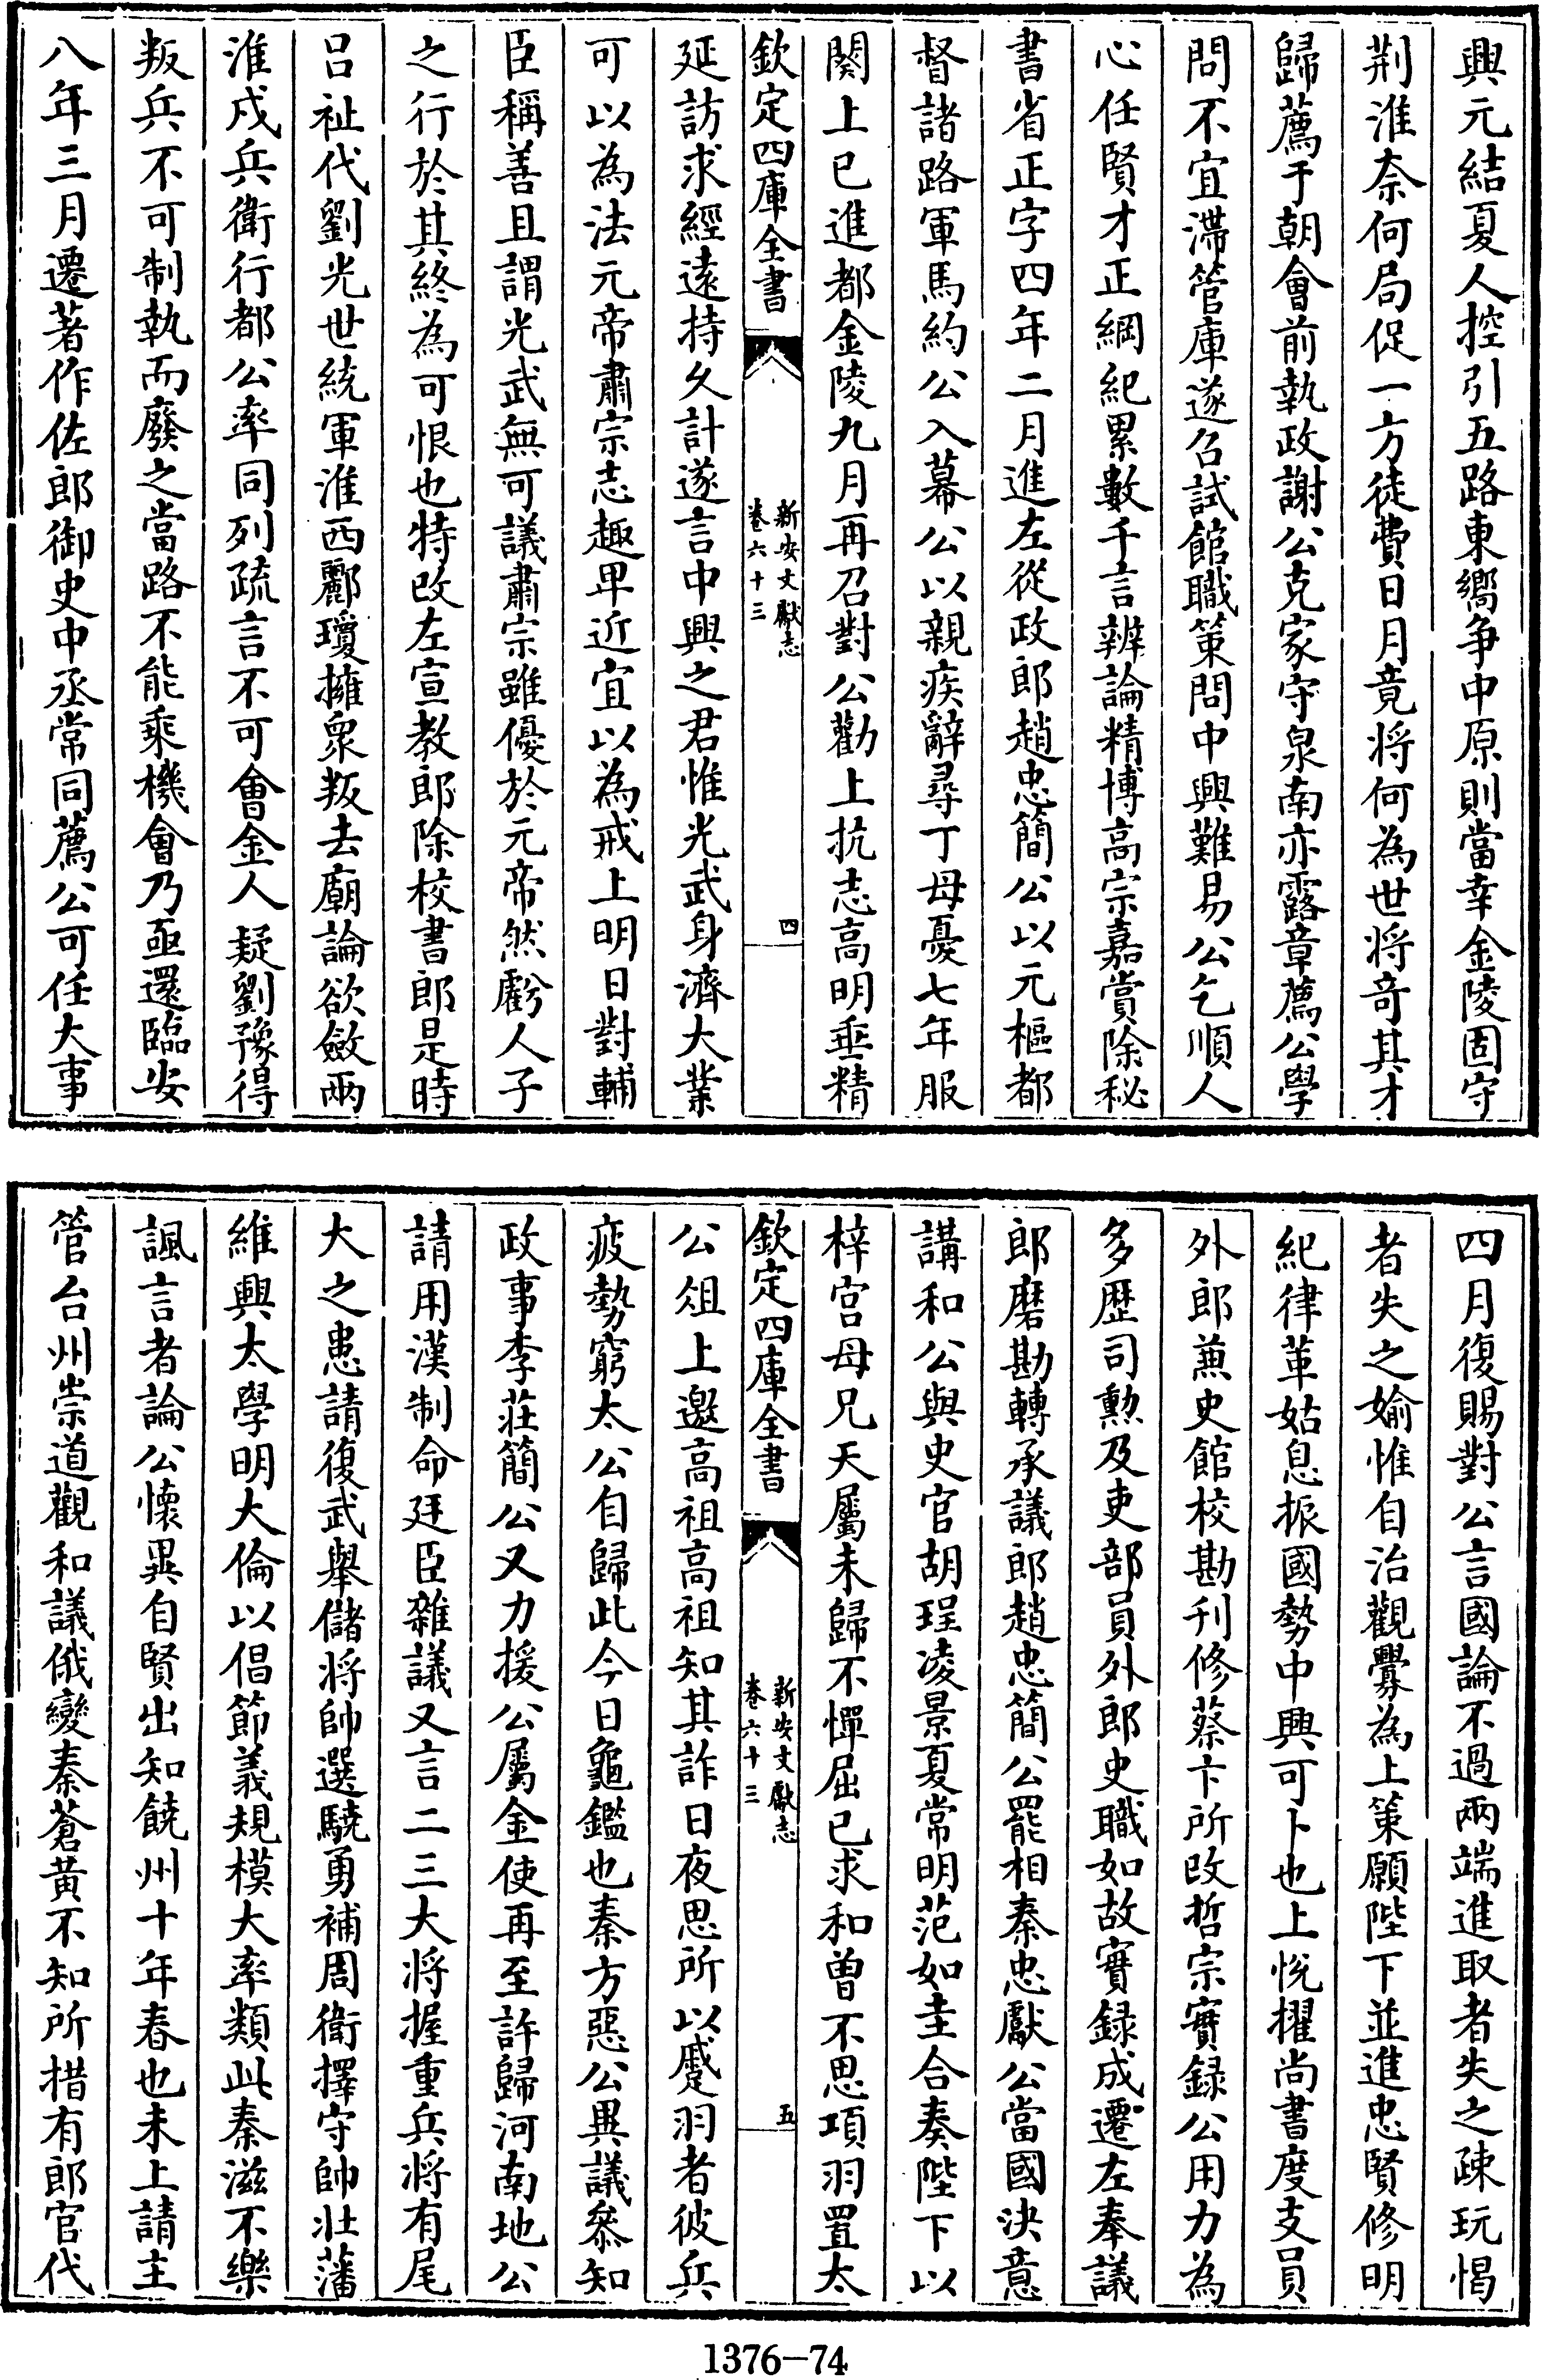 興元結夏人控引五路東嚮争中原則當幸金陵固守
荆淮奈何局促一方徒費日月竟将何為世将竒其才
歸薦于朝會前執政謝公克家守泉南亦露章薦公學
問不宜滯管庫遂召試館職策問中興難易公乞順人
心任賢才正綱紀累數千言辨論精博高宗嘉賞除秘
書省正字四年二月進左從政郎趙忠簡公以元樞都
督諸路軍馬約公入幕公以親疾辭尋丁母憂七年服
闋上已進都金陵九月再召對公勸上抗志高明垂精
欽定四庫全書
新安文獻志
卷六十三
四
延訪求經遠持久計遂言中興之君惟光武身濟大業
可以為法元帝肅宗志趣卑近宜以為戒上明日對輔
臣稱善且謂光武無可議肅宗雖優於元帝然虧人子
之行於其終為可恨也特改左宣教郎除校書郎是時
呂祉代劉光世統軍淮西酈瓊擁衆叛去廟論欲斂兩
淮戍兵衛行都公率同列疏言不可會金人疑劉豫得
叛兵不可制執而廢之當路不能乘機會乃亟還臨安
八年三月遷著作佐郎御史中丞常同薦公可任大事
四月復賜對公言國論不過兩端進取者失之疎玩愒
者失之媮惟自治觀釁為上策願陛下並進忠賢修明
紀律革姑息振國勢中興可卜也上悅擢尚書度支員
外郎兼史館校勘刋修蔡卞所改哲宗實録公用力為
多歷司勲及吏部員外郎史職如故實録成遷左奉議
郎磨勘轉承議郎趙忠簡公罷相秦忠獻公當國決意
講和公與史官胡珵凌景夏常明范如圭合奏陛下以
梓宫母兄天屬未歸不憚屈已求和曽不思項羽置太
欽定四庫全書
新安文獻志
卷六十三
五
公俎上邀高祖高祖知其詐日夜思所以蹙羽者彼兵
疲勢窮太公自歸此今日龜鑑也秦方惡公異議叅知
政事李莊簡公又力援公屬金使再至許歸河南地公
請用漢制命廷臣雜議又言二三大将握重兵将有尾
大之患請復武舉儲将帥選驍勇補周衛擇守帥壯藩
維興太學明大倫以倡節義規模大率類此秦滋不樂
諷言者論公懷異自賢出知饒州十年春也未上請主
管台州崇道觀和議俄變秦蒼黄不知所措有郎官代
1376-74